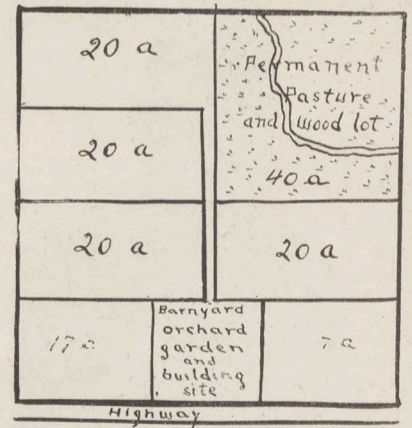 20 a
Permanent
Pasture
and wood lot
40 a
20 a
20 a
20 a
Barnyard
orchard
garden
and
building
site
17 a
7 a
Highway